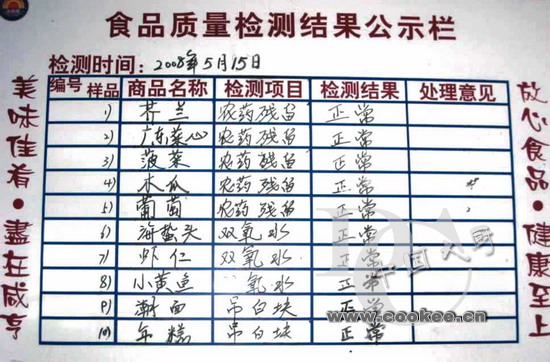 食品质量检测结果公示栏
检测时间: 2008年5月15日
编号 样品 商品名称 检测项目 检测结果 处理意见
1) 芥兰 农药残留 正常
2) 广东菜心 农药残留 正常
3) 菠菜 农药残留 正常
4) 木瓜 农药残留 正常
5) 葡萄 农药残留 正常
6) 海蜇头 双氧水 正常
7) 虾仁 双氧水 正常
8) 小黄鱼 氧水 正常
9) 潮面 吊白块 正常
10) 年糕 吊白块 正常
美味佳肴·盡在咸亨
放心食品·健康至上
www.cookee.cn